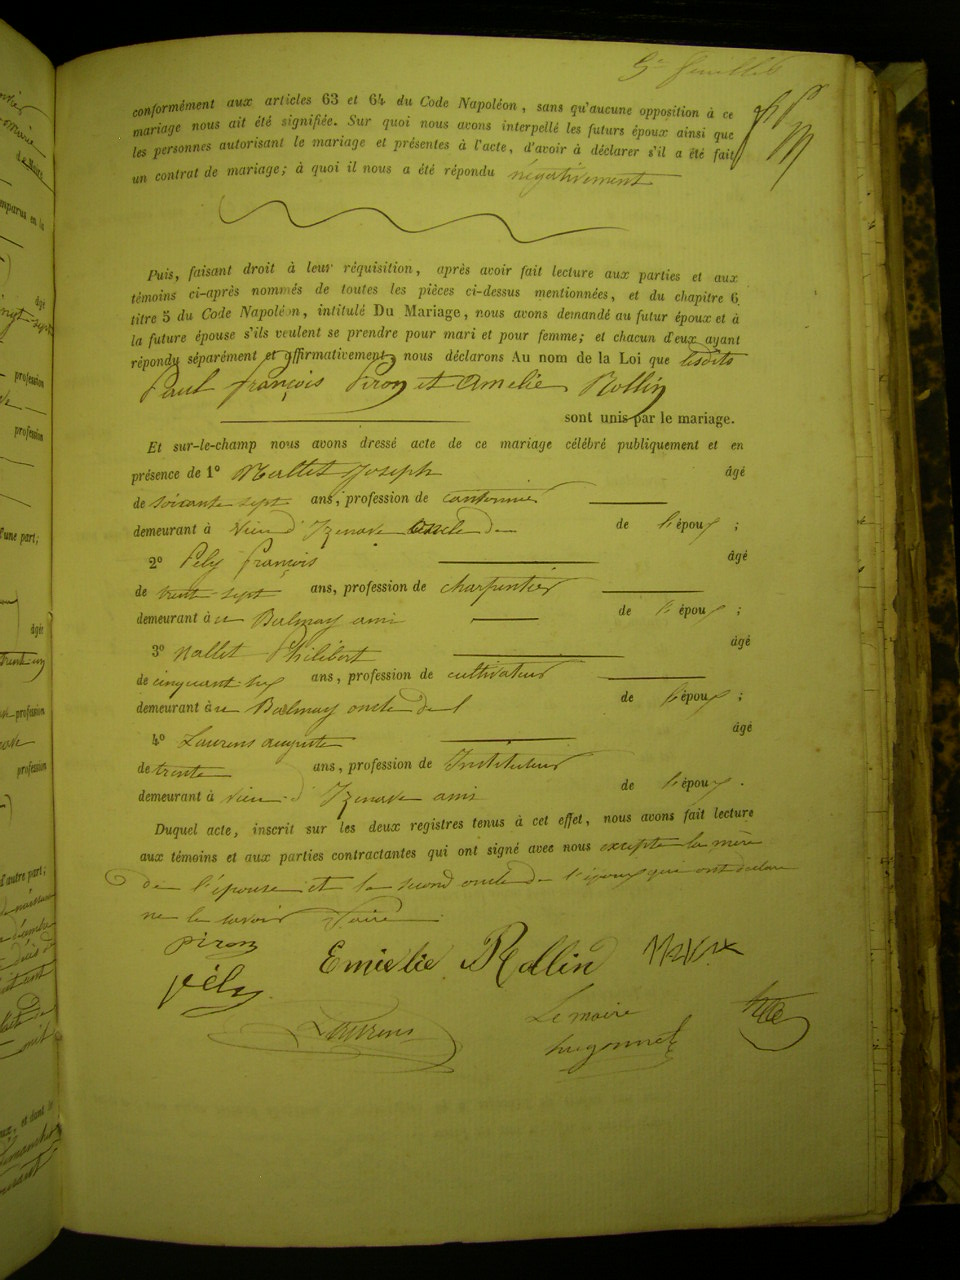 5e feuillet
conformément aux articles 63 et 64 du Code Napoléon, sans qu'aucune opposition à ce
mariage nous ait été signifiée. Sur quoi nous avons interpellé les futurs époux ainsi que
les personnes autorisant le mariage et présentes à l'acte, d'avoir à déclarer s'il a été fait
un contrat de mariage; à quoi il nous a été répondu négativement
Puis, faisant droit à leur réquisition, après avoir fait lecture aux parties et aux
témoins ci-après nommés de toutes les pièces ci-dessus mentionnées, et du chapitre 6,
titre 5 du Code Napoléon, intitulé Du Mariage, nous avons demandé au futur époux et à
la future épouse s'ils veulent se prendre pour mari et pour femme; et chacun d'eux ayant
répondu séparément et affirmativement, nous déclarons Au nom de la Loi que lesdits
Paul françois Piron et Amelie Rollin
sont unis par le mariage.
Et sur-le-champ nous avons dressé acte de ce mariage célébré publiquement et en
présence de 1° Mallet Joseph âgé
de soixante sept ans, profession de cantonnier
demeurant à Vieu d'Izenave oncle de de l'époux ;
2° Pely françois âgé
de trente-sept ans, profession de charpentier
demeurant à Balmay ami de l'époux ;
3° Mallet Philibert âgé
de cinquant ans, profession de cultivateur
demeurant à Balmay oncle de l de l'époux ;
4° Laurens auguste âgé
de trente ans, profession de Instituteur
demeurant à Vieu d'Izenave ami de l'époux .
Duquel acte, inscrit sur les deux registres tenus à cet effet, nous avons fait lecture
aux témoins et aux parties contractantes qui ont signé avec nous excepté la mère
de l'épouse et le second oncle de l'époux qui ont déclaré
ne le savoir faire
piron Emielie Rollin
pély
Laurens Le maire
hugonnet